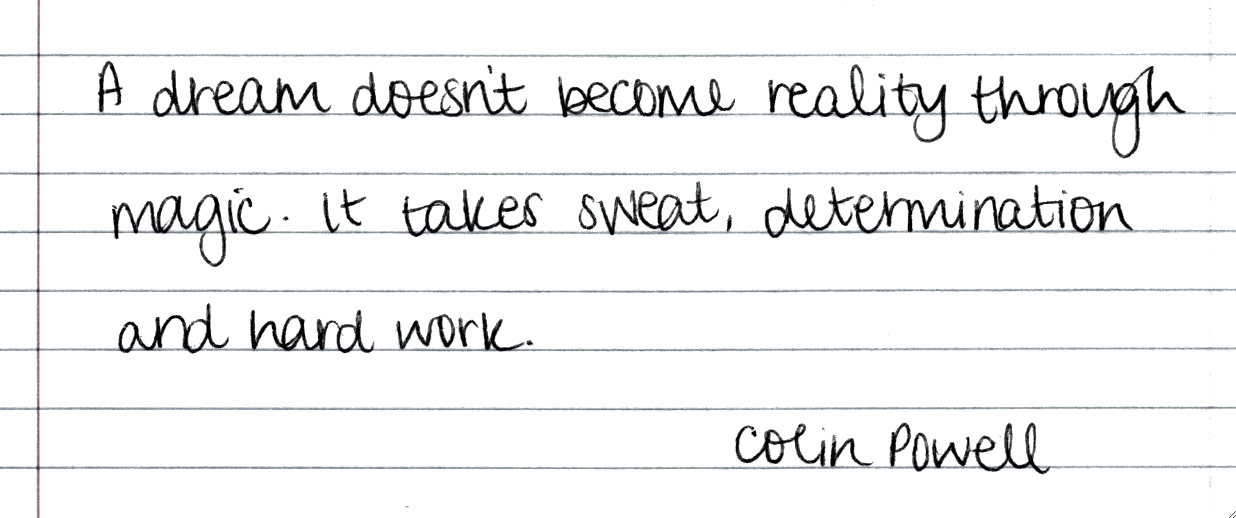 A dream doesn't become reality through
magic. It takes sweat, determination
and hard work.
Colin Powell